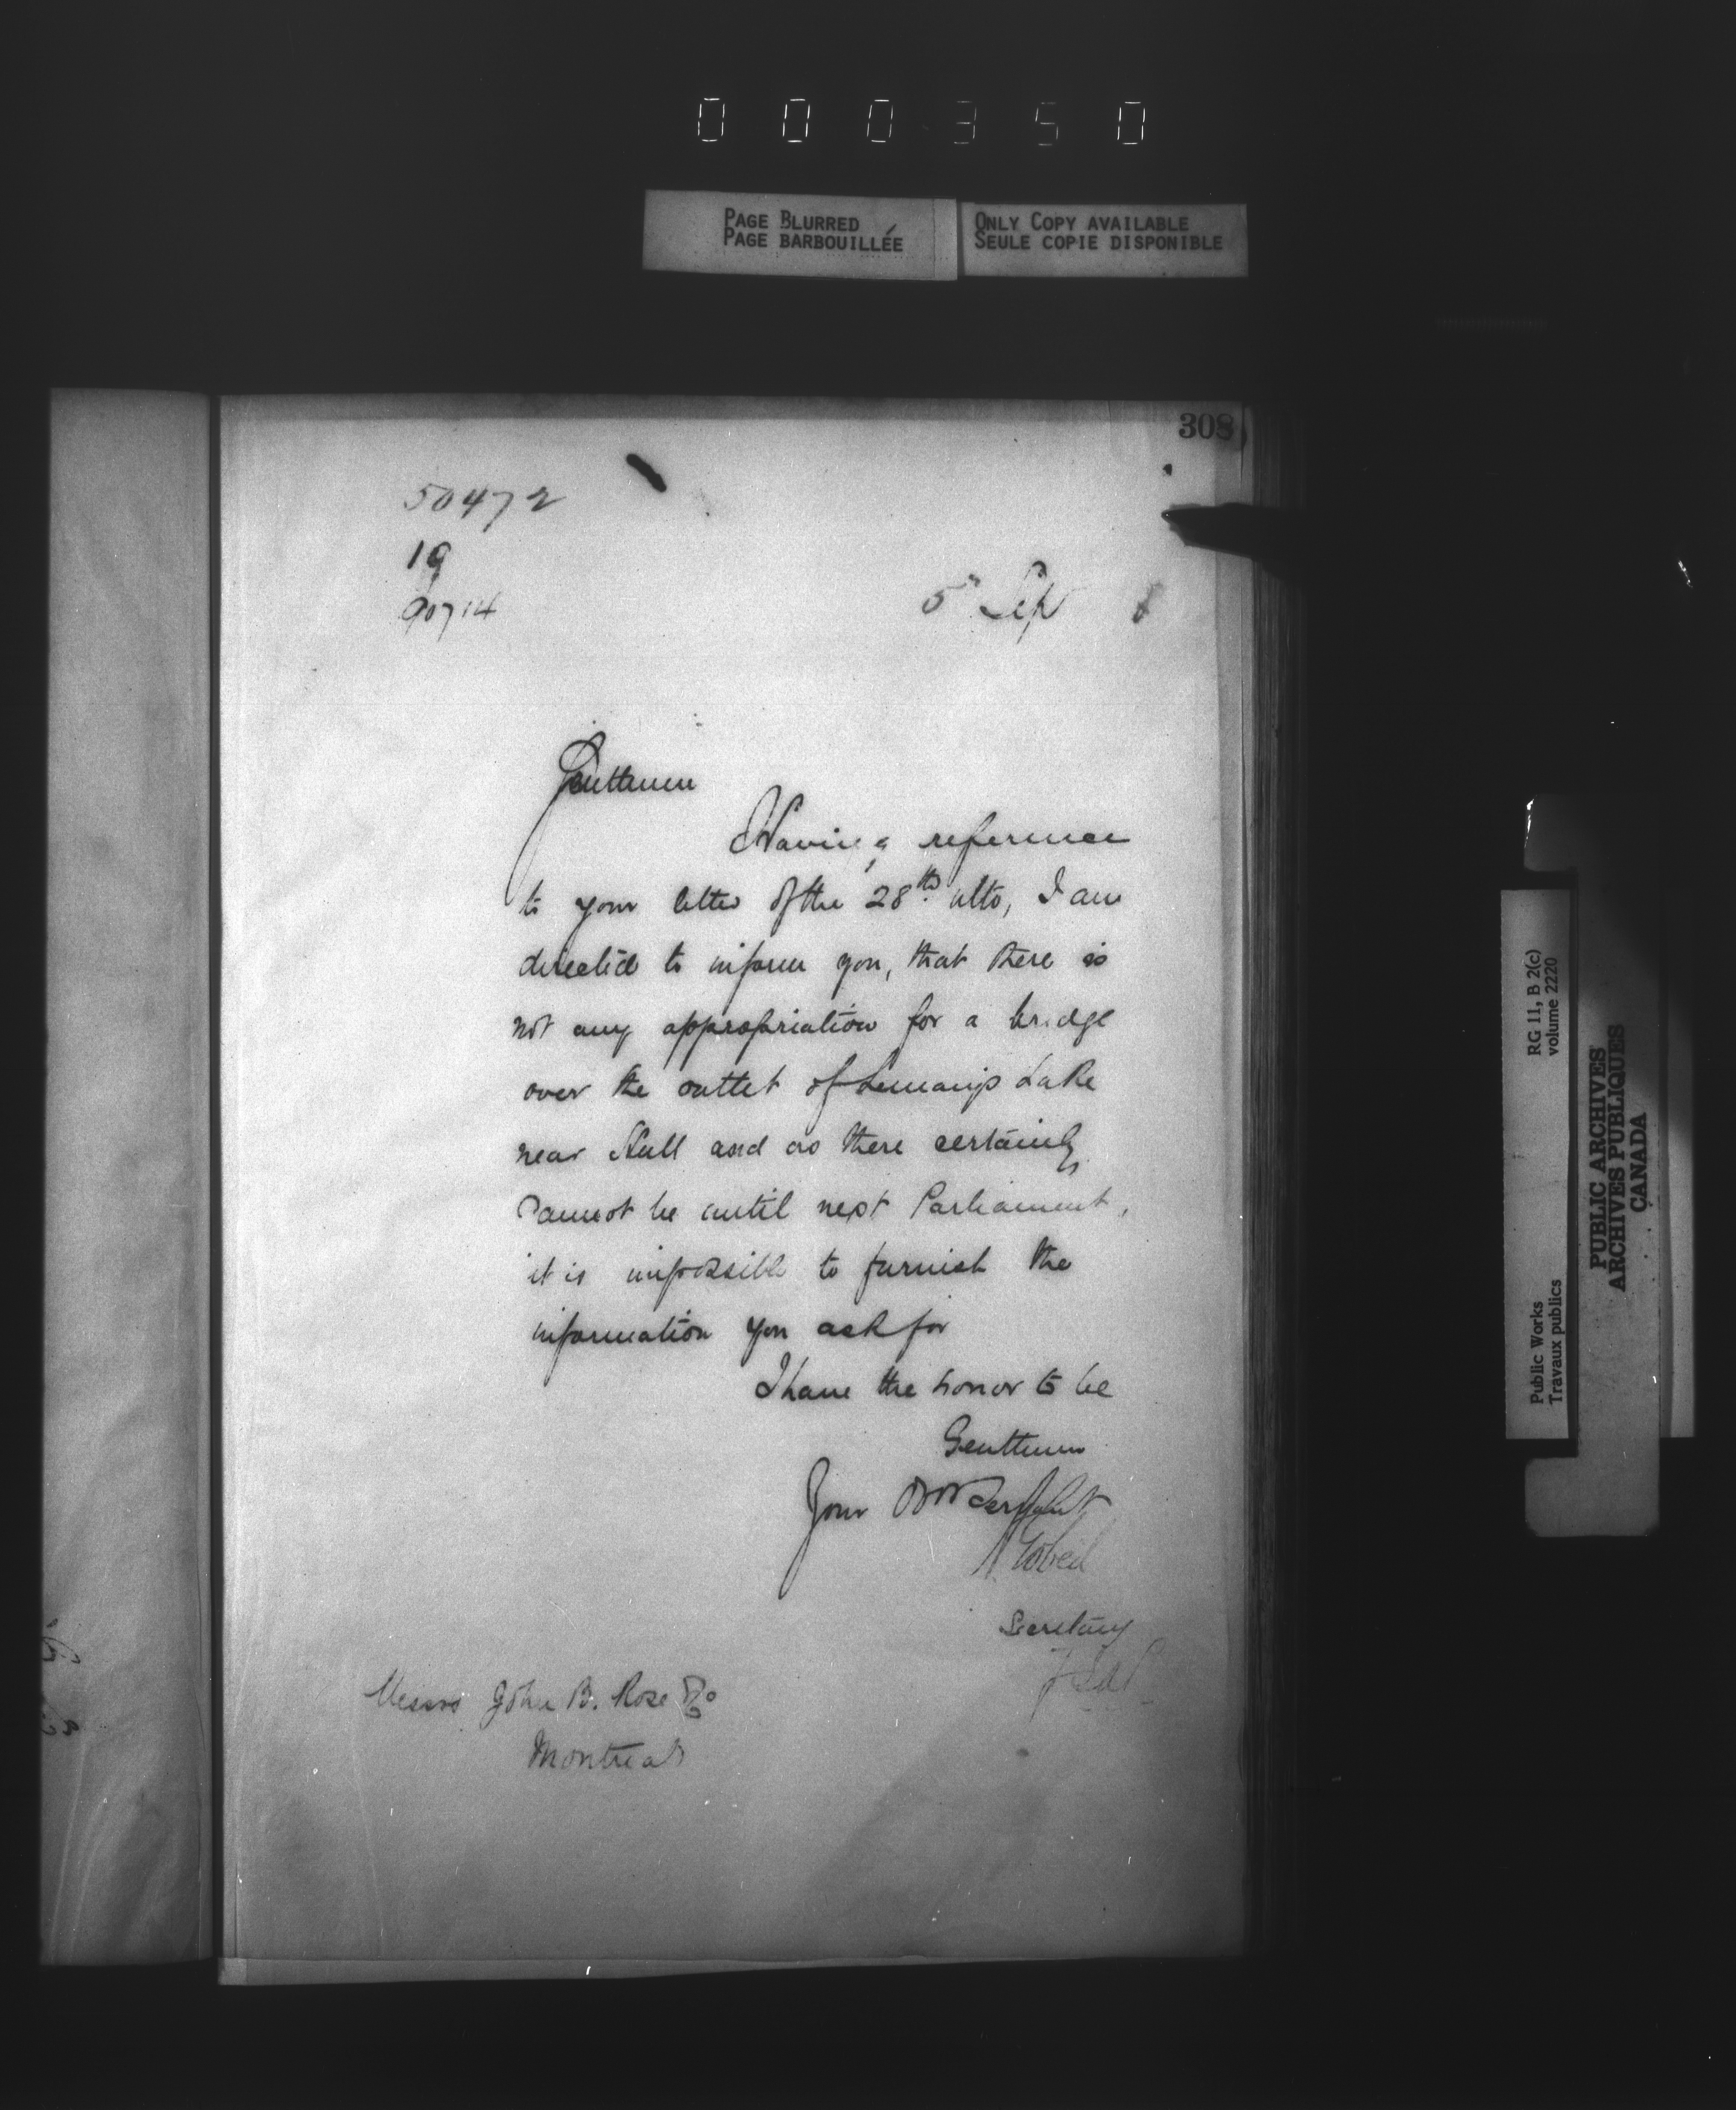 000350
PAGE BLURRED
PAGE BARBOUILLÉE
ONLY COPY AVAILABLE
SEULE COPIE DISPONIBLE
308
50472
19
90714
5 Sep
Gentlemen
Having reference
to your letter of the 28th ulto, I am
directed to inform you, that there is
not any appropriation for a bridge
over the outlet of Leamy's Lake
near Hull and as there certainly
cannot be until next Parliament,
it is impossible to furnish the
information you ask for
I have the honor to be
Gentlemen
Your Obt Servant
A Gobeil
Secretary
Messrs John B. Rose & Co
Montreal
RG 11, B 2(c)
volume 2220
Public Works
Travaux publics
PUBLIC ARCHIVES
ARCHIVES PUBLIQUES
CANADA